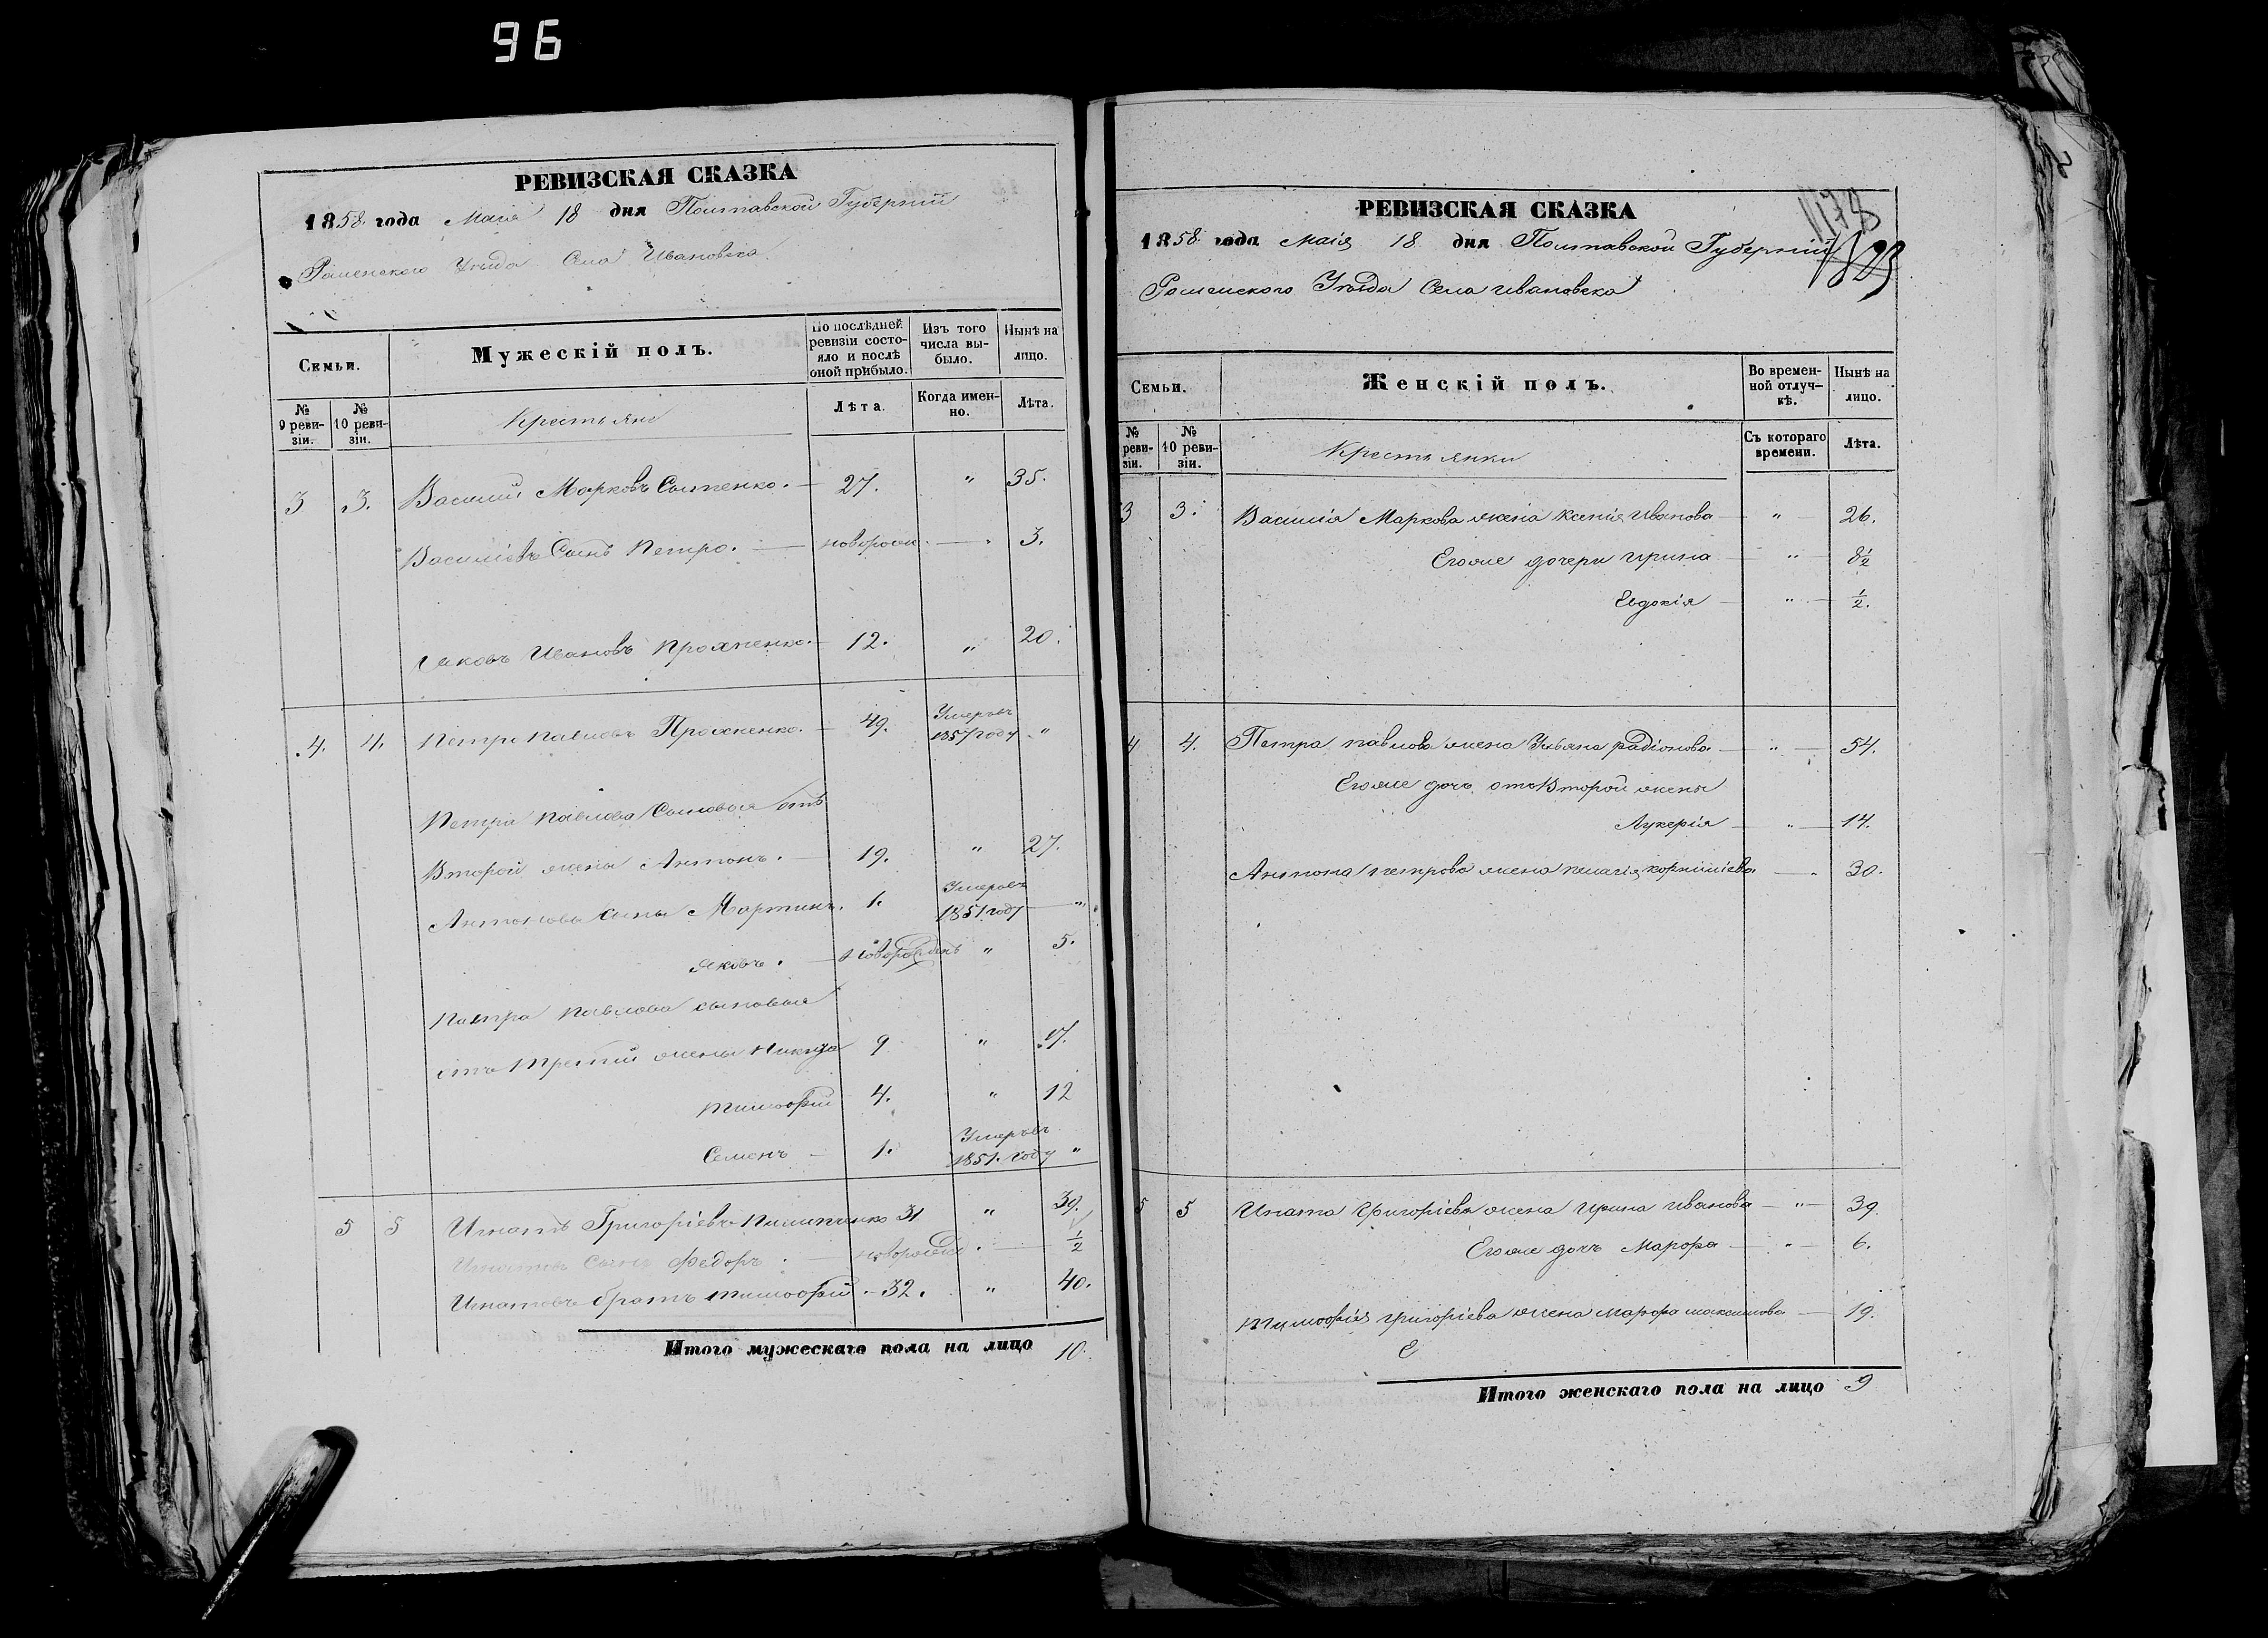 96
РЕВИЗСКАЯ СКАЗКА
1858 года Маія 18 дня Полтавской Губерніи
Роменского Уѣзда Села Ивановска
Семьи.
Мужескій полъ.
По послѣдней ревизіи состояло и послѣ оной прибыло.
Изъ того числа выбыло.
Нынѣ на лицо.
№ 9 ревизіи.
№ 10 ревизіи.
Крестьяне
Лѣта.
Когда именно.
Лѣта.
3 3. Василий Марковъ 27. " 35.
Васильевъ Сынъ Петро. новорож. " 3.
Яковъ Ивановъ Прохненко. 12. " 20.
4. 4. Петръ Павловъ Прохненко. 49. Умеръвъ 1857 году "
Петра Павлова Сыновья отъ
Второй жены Антонъ. 19. " 27.
Антоновы сыны Мартинъ. 1. Умеръвъ 1851 году "
Яковъ. новорожденъ " 5.
Петра Павлова сыновья
отъ третий жены Никита 9 " 17.
тимофій 4. " 12
Семенъ 1. Умеръвъ 1851. году "
5 5 Игнатъ Григоріевъ Пилипченко 31 " 39.
Игнатовъ Сынъ Федоръ. новорожд. 1/2
Игнатовъ братъ тимофій. 32. " 40.
Итого мужескаго пола на лицо 10.
РЕВИЗСКАЯ СКАЗКА
1178
1858 года маія 18 дня Полтавской Губерніи
Роменского Уѣзда Села ивановска
Семьи.
Женскій полъ.
Во временной отлучкѣ.
Нынѣ на лицо.
№ ревизіи.
№ 10 ревизіи.
Крестьянки
Съ котораго времени.
Лѣта.
3 3. Василія Маркова жена Ксенія Иванова " 26.
Егоже дочери ирина " 8 1/2
Евдокія " 1/2.
4 4. Петра павлова жена Ульяна радіонова " 54.
Егоже дочь отъ Второй жены
Лукерія " 14.
Антона петрова жена пелагія корниліева " 30.
5 5 Игната григоріева жена ирина иванова " 39.
Егоже дочь Марфа " 6.
тимофія григоріева жена марфа максимова 19.
Е
Итого женскаго пола на лицо 9